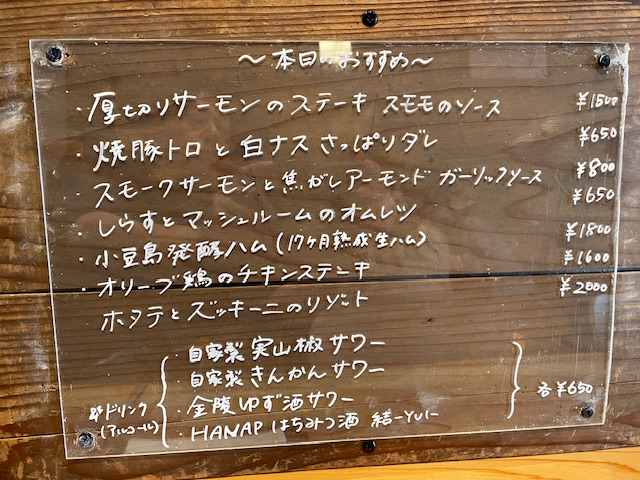 ～本日のおすすめ～
・厚切りサーモンのステーキ スモモのソース ¥1500
・焼豚トロと白ナス さっぱりダレ ¥650
・スモークサーモンと焦がしアーモンド ガーリックソース ¥800
・しらすとマッシュルームのオムレツ ¥650
・小豆島発酵ハム(17ヶ月熟成生ハム) ¥1800
・オリーブ鶏のチキンステーキ ¥1600
ホタテとズッキーニのリゾット ¥2000
・自家製 実山椒サワー
・自家製 きんかんサワー
ドリンク
(アルコール)
・金陵ゆず酒サワー
・HANAP はちみつ酒 結-YUI-
各¥650